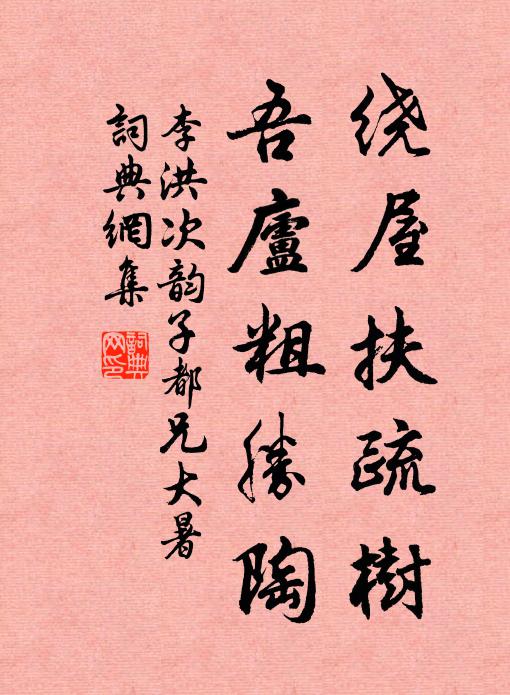 绕屋扶疏樹
吾廬粗勝陶
李洪次韵子都兄大暑
詞典網集
詞典網印